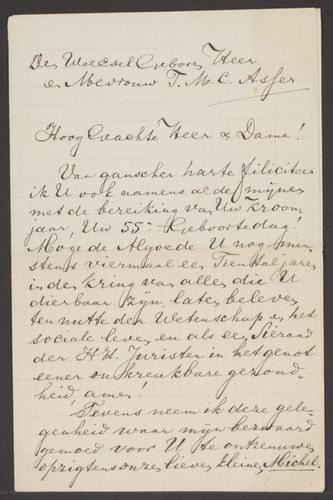 Den WelEdel Geboren Heer
en Mevrouw T. M. C. Asser
Hoog Geachte Heer & Dame!
Van ganscher harte filiciteer
ik U ook namens al de mijnen
met de bereiking van Uw Kroon
jaar, Uw 55ste Geboortedag!
Moge de Algoede U nog min-
stens viermaal een Tiental jaren
in de kring van alles die U
dierbaar zijn, laten beleven
ten nutte der Wetenschap en het
sociale leven en als een Sieraad
der H.H. Juristen in het genot
eener onkreukbare gezond-
heid amen!
Tevens neem ik deze gele-
genheid waar mijn bezwaard
gemoed voor U te ontrouwen
opzigtens onze lieve kleine Michel.